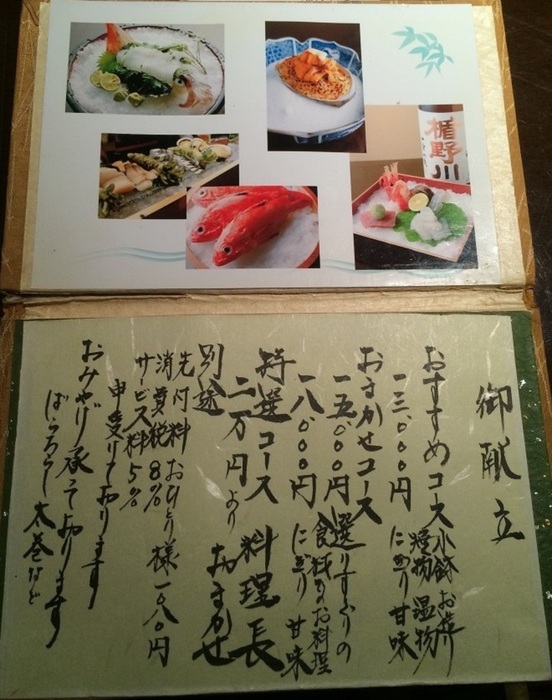 楯野川
御献立
おすすめコース 小鉢 お造り
焼物 温物
一三、〇〇〇円 にぎり 甘味
おまかせコース
一五、〇〇〇円 選りすぐりの
食料のお料理
一八、〇〇〇円 にぎり 甘味
特選コース 料理長
二万円より おまかせ
別途
先付料 お一人様 一〇八〇円
消費税8%
サービス料5%
申受けております
おみやげ承っております
ばらちらし 太巻など